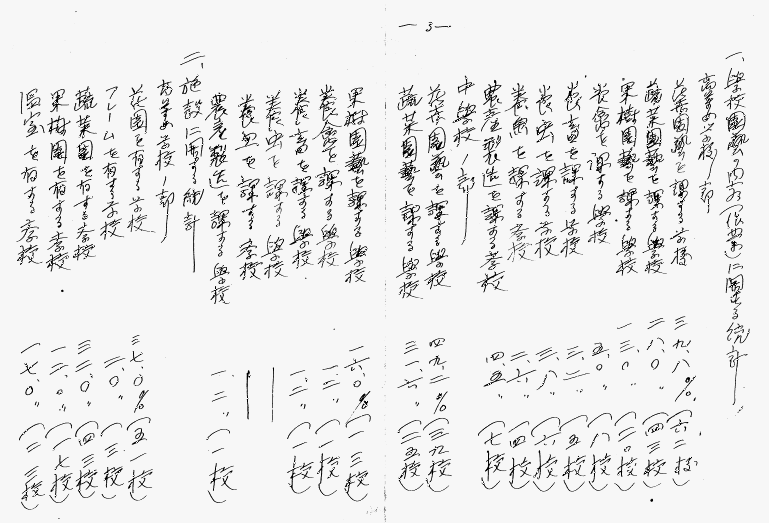 — 3 —
一、學校園藝ノ内容(作業)に關する統計
高等女学校ノ部
花卉園藝を課する学校 三九.八% (六二校)
蔬菜園藝を課する學校 二八.〇〃 (四三校)
果樹園藝を課する學校 一三.〇〃 (二〇校)
養禽を課する學校 五.〇〃 (八校)
養畜を課する学校 三.二〃 (五校)
養虫を課する学校 三.八〃 (六校)
養魚を課する学校 二.六〃 (四校)
農産製造を課する学校 四.五〃 (七校)
中學校ノ部
花卉園藝を課する學校 四九.二% (三九校)
蔬菜園藝を課する學校 三一.六〃 (二五校)
果樹園藝を課する學校 一六.〇% (一三校)
養禽を課する學校 一.二〃 (一校)
養畜を課する學校 一.二〃 (一校)
養虫を課する學校 |
養魚を課する学校 |
農産製造を課する學校 一.二〃 (一校)
二、施設に関する統計
高等女学校ノ部
花園を有する学校 三七.〇% (五一校)
フレームを有する学校 二.〇〃 (三校)
蔬菜園を有する学校 三三.〇〃 (四三校)
果樹園を有する学校 一二.〇〃 (一七校)
温室を有する学校 一七.〇〃 (二三校)